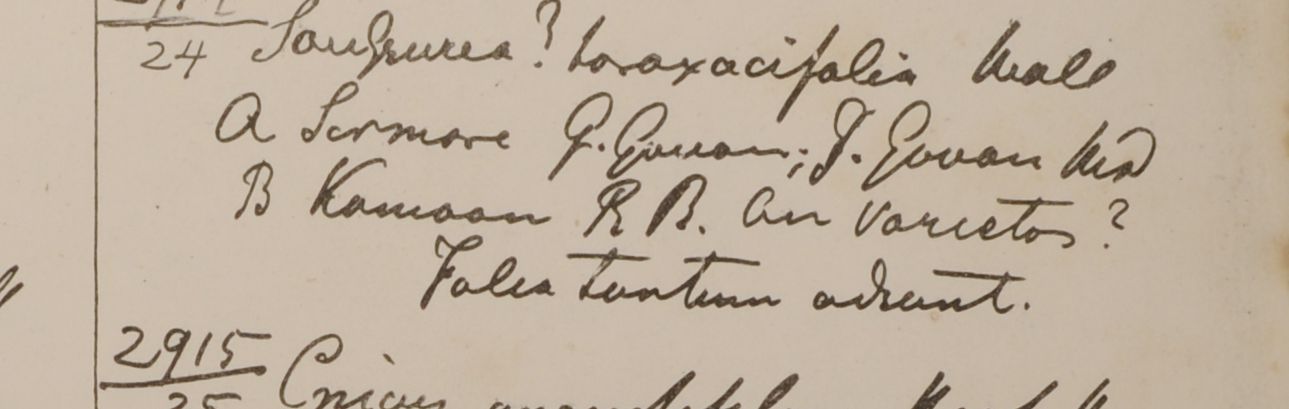 24 Saussurea? taraxacifolia Wall
A Sirmore G. Govan; J. Govan
B Kamaon R B. an varietas?
Folia tantum adsunt.
2915
25 Cnicus